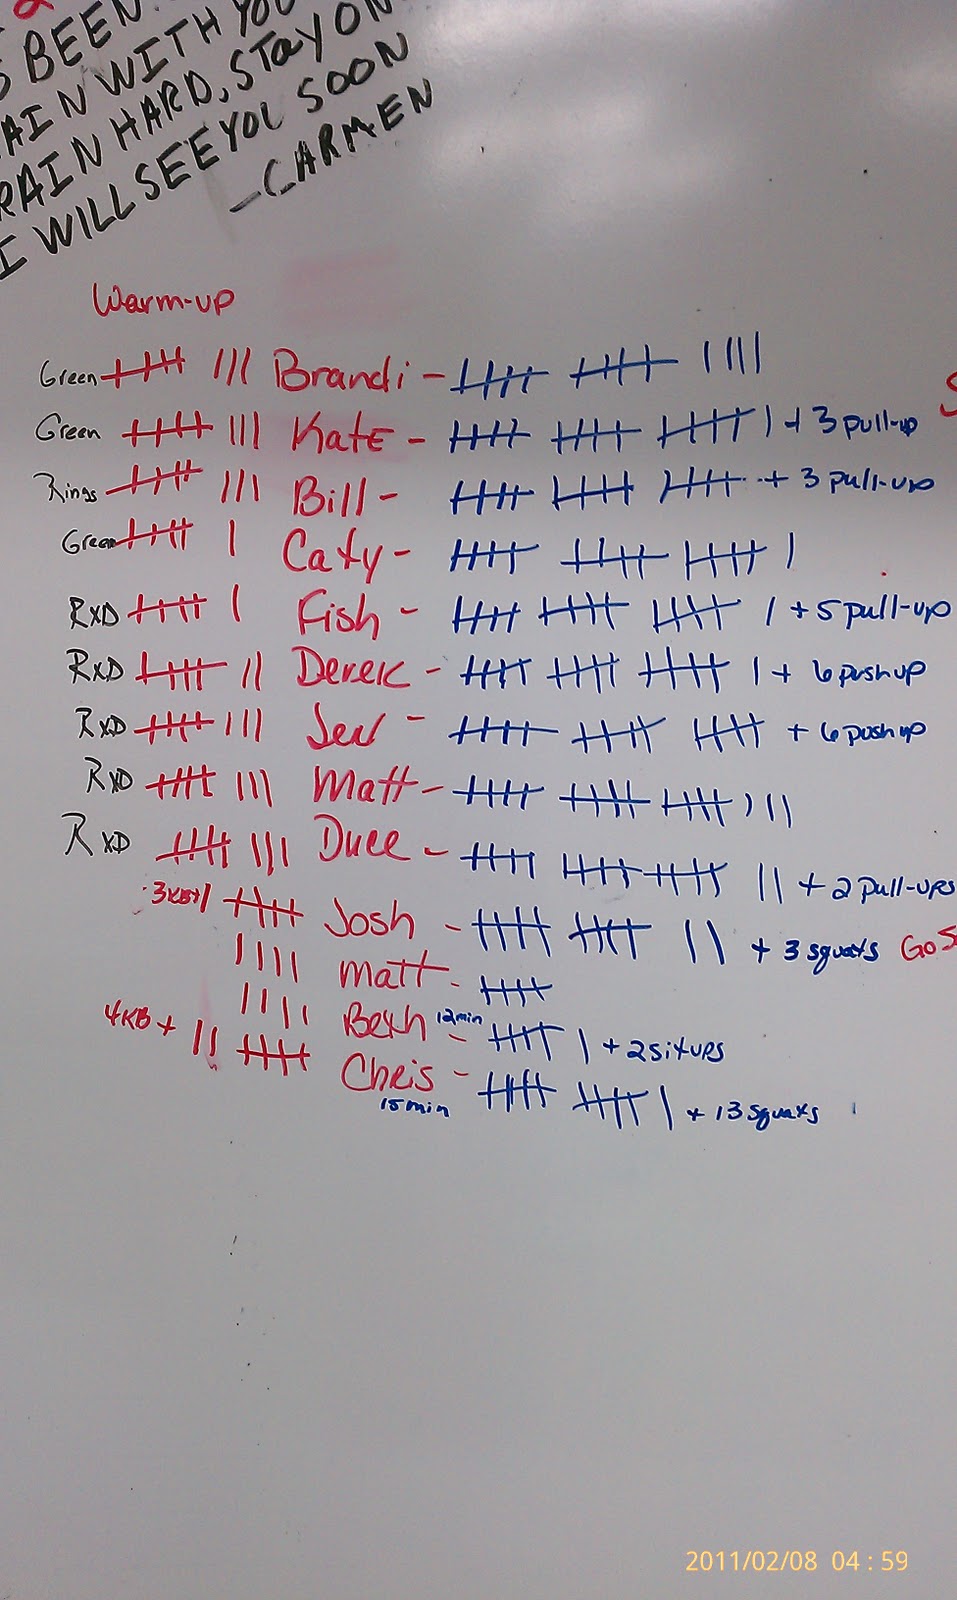 S BEEN
AIN WITH YOU
RAIN HARD, STAY ON
I WILL SEE YOU SOON
—CARMEN
Warm-up
Green 𝍸 ||| Brandi - 𝍸 𝍸 ||||
Green 𝍸 ||| Kate - 𝍸 𝍸 𝍸 | + 3 pull-up
Rings 𝍸 ||| Bill - 𝍸 𝍸 𝍸 + 3 pull-up
Green 𝍸 | Caty - 𝍸 𝍸 𝍸 |
RXD 𝍸 | Fish - 𝍸 𝍸 𝍸 | + 5 pull-up
RXD 𝍸 || Derek - 𝍸 𝍸 𝍸 | + 6 push up
RXD 𝍸 ||| Jen - 𝍸 𝍸 𝍸 + 6 push up
RXD 𝍸 ||| Matt - 𝍸 𝍸 𝍸 |||
RXD 𝍸 ||| Duce - 𝍸 𝍸 𝍸 || + 2 pull-ups
3KB+| 𝍸 Josh - 𝍸 𝍸 || + 3 squats GO
|||| Matt - 𝍸
|||| Beth 12min - 𝍸 | + 2 situps
4KB + || 𝍸 Chris - 𝍸 𝍸 | + 13 squats
15min
2011/02/08 04:59